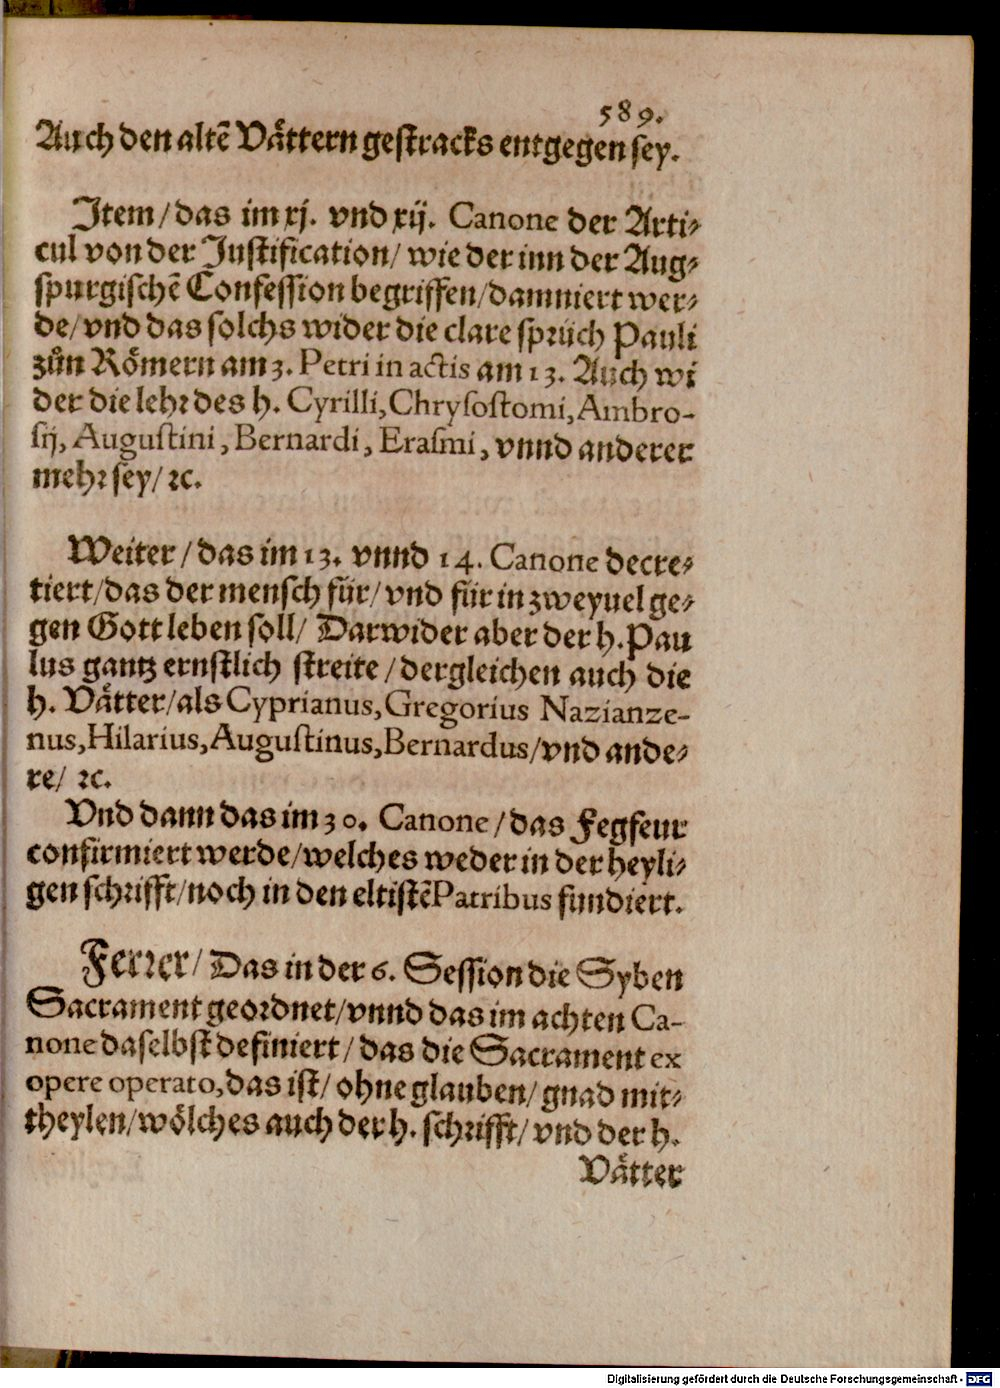 589.
Auch den altē Vättern gestracks entgegen sey.
Item/das im xj. vnd xij. Canone der Arti-
cul von der Justification/ wie der inn der Aug-
spurgischē Confession begriffen/damniert wer-
de/vnd das solchs wider die clare sprüch Pauli
zůn Römern am 3. Petri in actis am 13. Auch wi
der die lehr des h. Cyrilli,Chrysostomi,Ambro-
sij, Augustini, Bernardi, Erasmi, vnnd anderer
mehr sey/ ꝛc.
Weiter/das im 13. vnnd 14. Canone decre-
tiert/das der mensch für/vnd für in zweyuel ge-
gen Gott leben soll/ Darwider aber der h. Pau
lus gantz ernstlich streite/dergleichen auch die
h. Vätter/als Cyprianus,Gregorius Nazianze-
nus,Hilarius,Augustinus,Bernardus/vnd ande-
re/ ꝛc.
Vnd dann das im 30. Canone/das Fegfeur
confirmiert werde/welches weder in der heyli-
gen schrifft/noch in den eltistē Patribus fundiert.
Ferrer/Das in der 6. Session die Syben
Sacrament geordnet/vnnd das im achten Ca-
none daselbst definiert/das die Sacrament ex
opere operato,das ist/ohne glauben/gnad mit-
theylen/wölches auch der h. schrifft/vnd der h.
Vätter
Digitalisierung gefördert durch die Deutsche Forschungsgemeinschaft - DFG